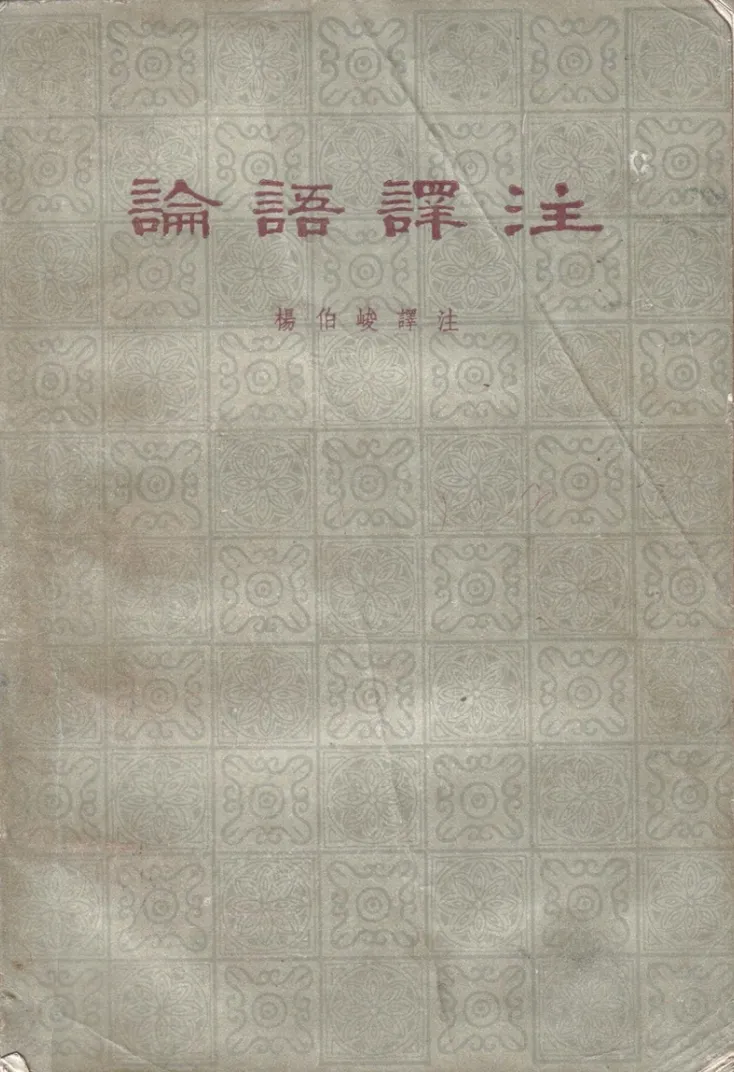 論語譯注
楊伯峻譯注